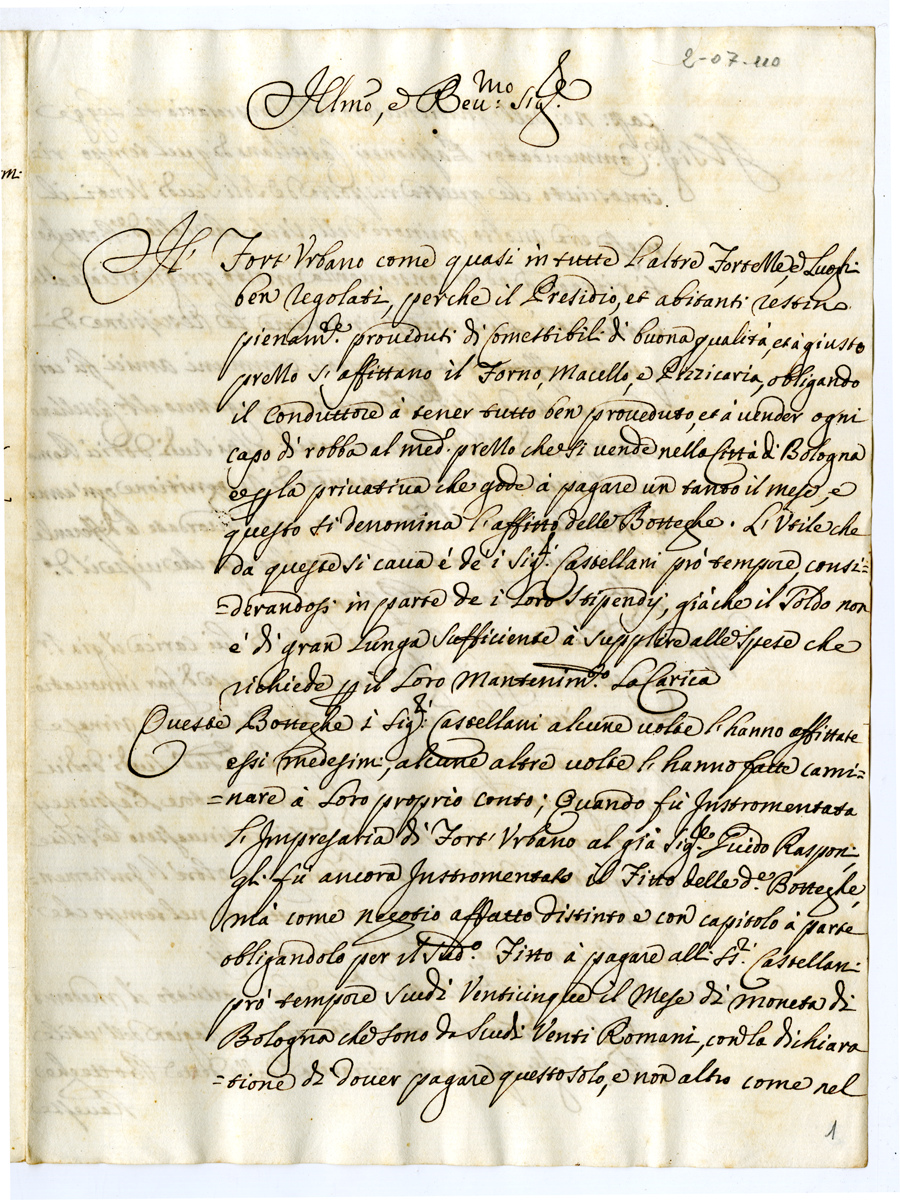 2-07-110
Illmo, e Reu:mo Sigr.
Il Fort' Vrbano come quasi in tutte l'altre Fortezze, e Luoghi
ben regolati, perche il Presidio, et abitanti restino
pienamte. proueduti di Comestibili di buona qualità, et à giusto
prezzo si affittano il Forno, Macello, e Pizzicaria, obligando
il Conduttore à tener tutto ben proueduto, et à vender ogni
capo di robba al med. prezzo che si vende nella Città di Bologna
e p la priuatiua che gode à pagare un tanto il mese, e
questo si denomina l'affitto delle Botteghe. L'Vtile che
da queste si caua é de i Sigri. Castellani pró tempore, consi=
=derandosi in parte de i Loro Stipendij, giàche il Soldo non
é di gran lunga sufficiente à supplire alle spese che
richiede p il Loro Mantenimto. La Carica
Queste Botteghe i Sigri. Castellani alcune uolte l'hanno affittate
essi medesimi, alcune altre uolte l'hanno fatte cami=
=nare à Loro proprio conto; Quando fù Instromentata
l'Impresaria di Fort' Vrbano al già Sigre. Guido Rasponi
gli fù ancora Instromentato il Fitto delle de. Botteghe,
mà come negotio affatto distinto e con capitolo à parte
obligandolo per il Sudo. Fitto à pagare alli Sri. Castellani
pró tempore scudi Venticinque il Mese di moneta di
Bologna che sono da Scudi Venti Romani, con la dichiara
=tione di douer pagare questo solo, e non altro come nel
1
m: